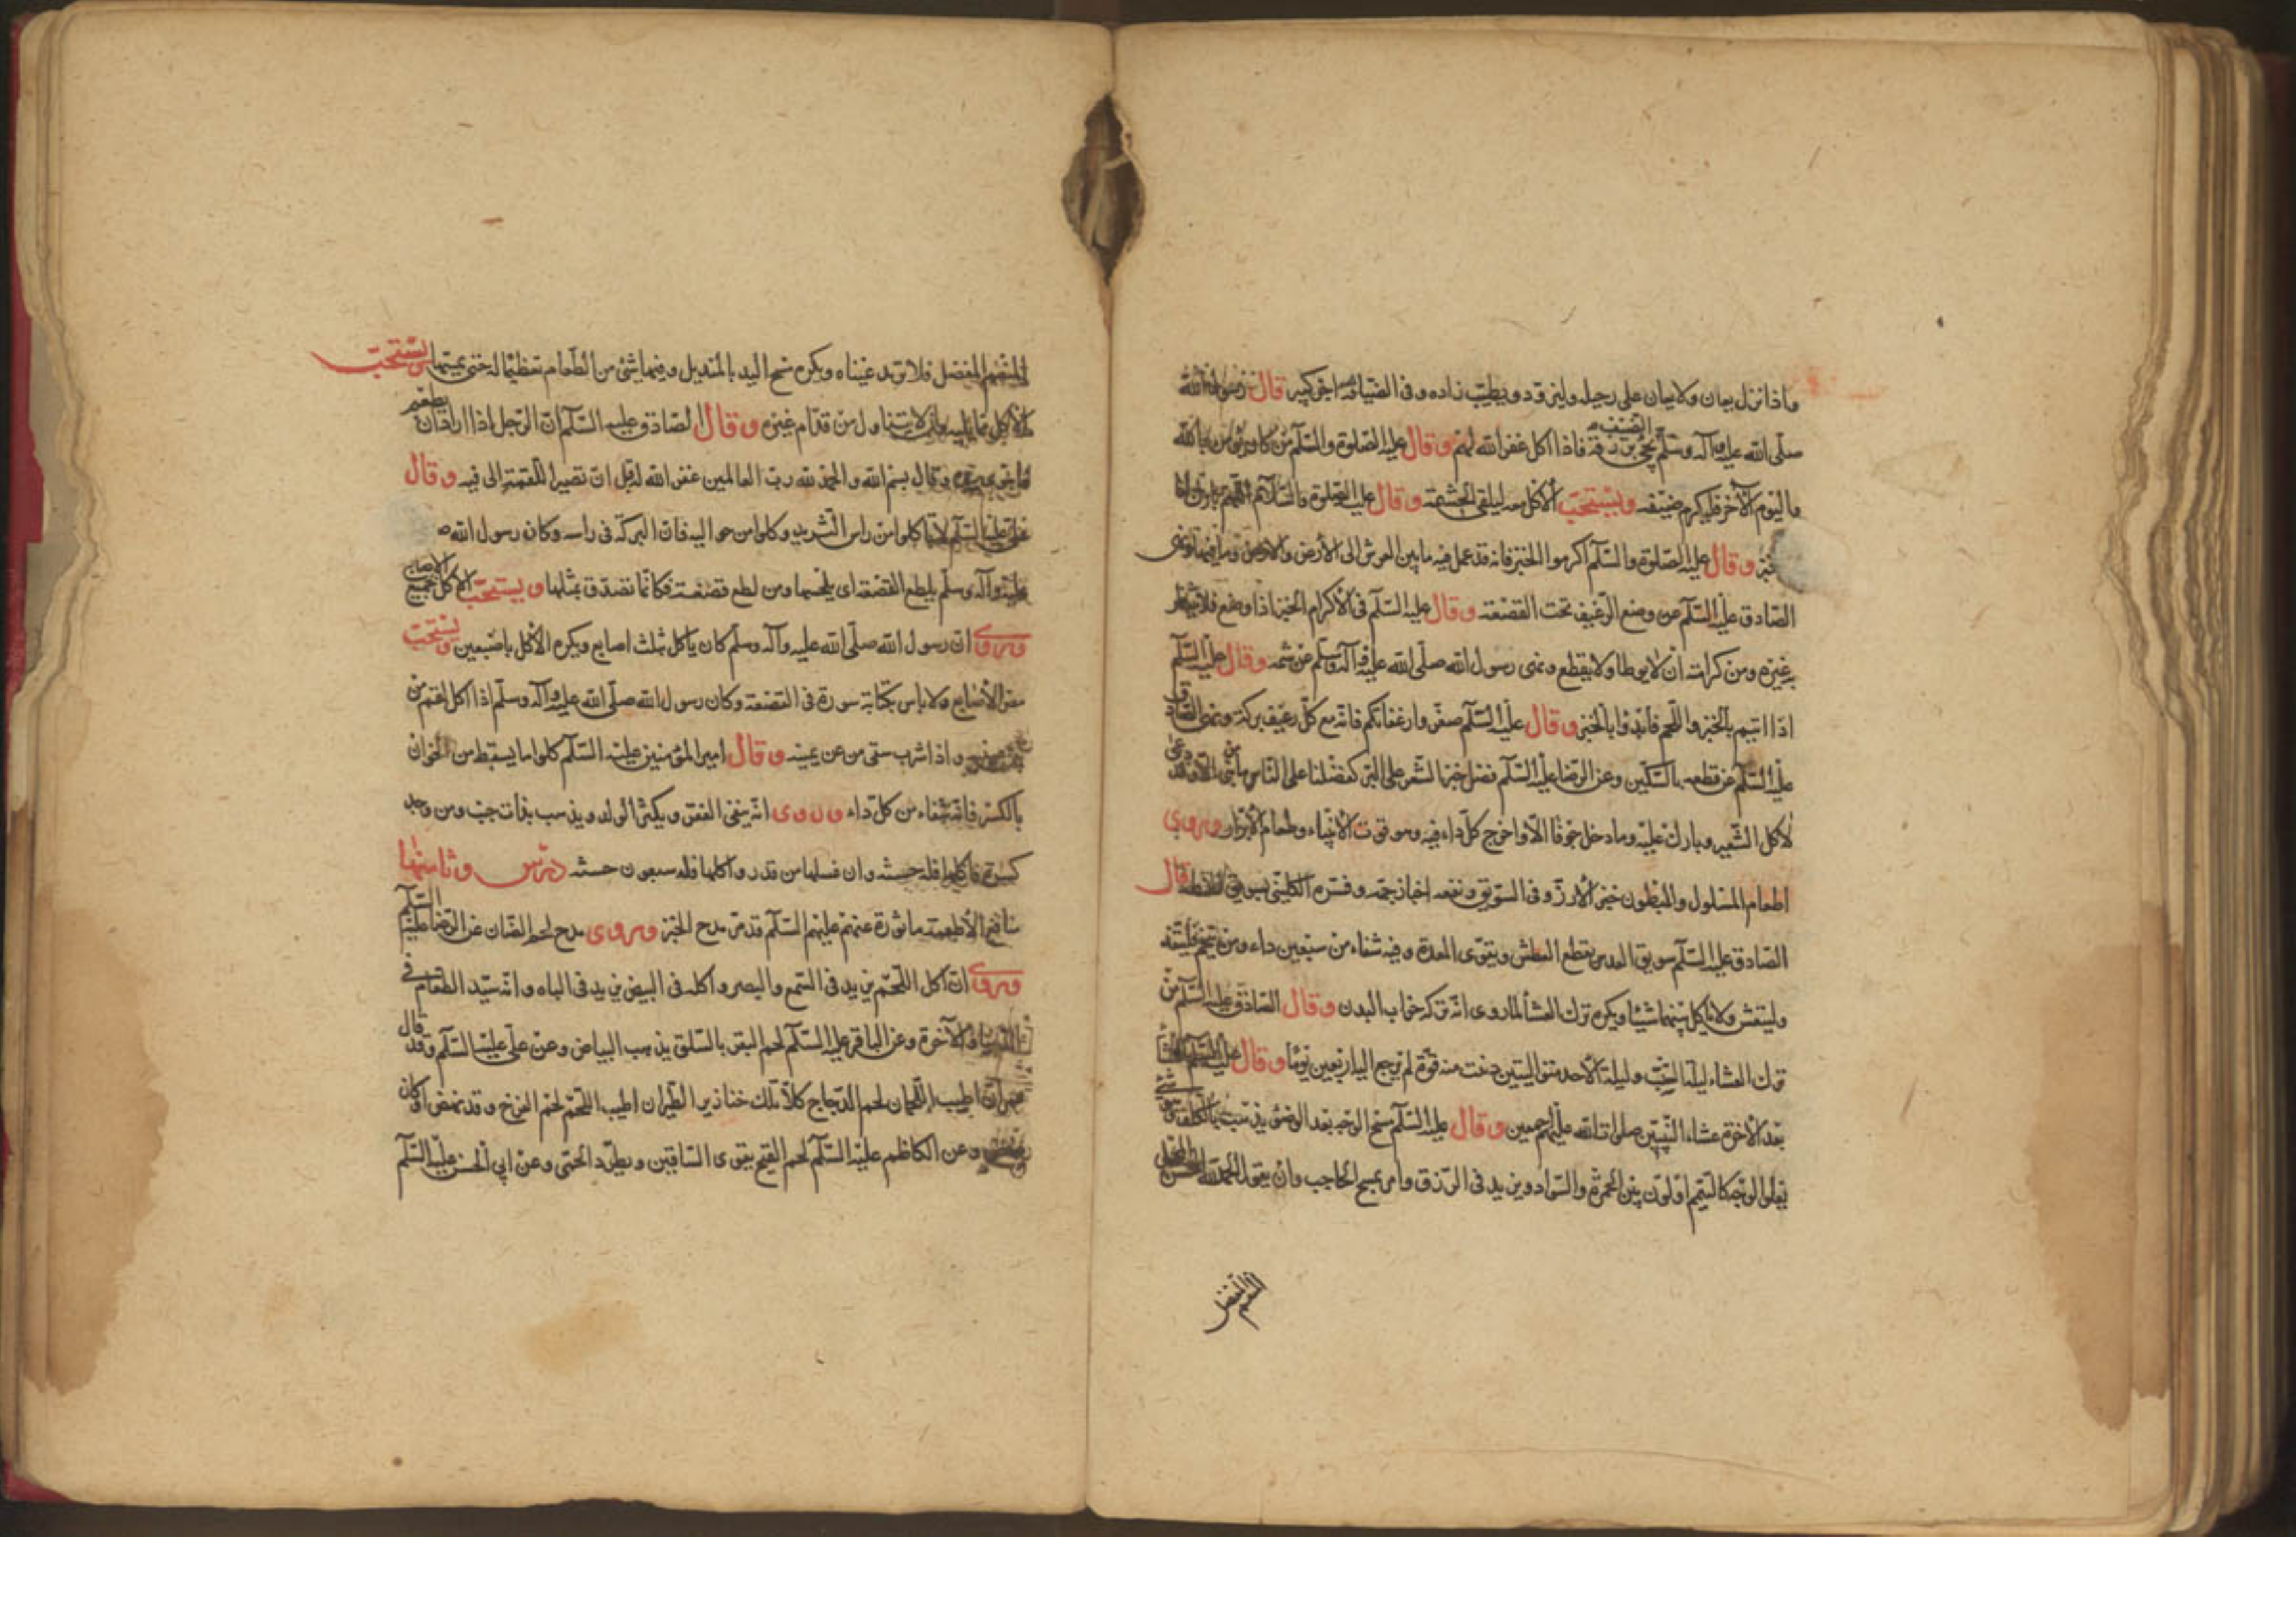 واذا نزل يعان ولا يعان على رحيله وليزود ويطيب زاده وفى الضيافة اجر كبير قال رسول الله
صلى الله عليه وآله وسلم الضيف يجئ برزقه فاذا اكل غفر الله لهم وقال عليه الصلوة والسلم من كان يؤمن بالله
واليوم الآخر فليكرم ضيفه ويستحب الأكل معه ليلقى الحشمة وقال عليه الصلوة والسلام اللهم بارك لنا
خبز وقال عليه الصلوة والسلم اكرموا الخبز فانه قد عمل فيه ما بين العرش الى الأرض والارض وما فيها ونهى
الصادق عليه السلم عن وضع الرغيف تحت القصعة وقال عليه السلم فى الأكرام الخبز اذا وضع فلا ينتظر
به غيره ومن كرامته ان لا يوطا ولا يقطع ونهى رسول الله صلى الله عليه وآله وسلم عن شمه وقال عليه السلم
اذا اتيتم بالخبز واللحم فابدؤا بالخبز وقال عليه السلم صغروا رغفانكم فانه مع كل رغيف بركة ونهى الصادق
عليه السلم عن قطعه بالسكين وعن الرضا عليه السلم فضل خبز الشعير على البر كفضلنا على الناس ما من نبى الا وقد دعى
لأكل الشعير وبارك عليه وما دخل جوفا الا واخرج كل داء فيه وهو قوت الأنبياء وطعام الأبرار وروى
اطعام المسلول والمبطون خبز الأرز وفى السويق ونفعه اخبار جمة وفسره الكلينى بسويق الحنطة قال
الصادق عليه السلم سويق العدس يقطع العطش ويقوى المعدة وفيه شفاء من سبعين داء ومن يتخم فليتغد
وليتعش ولا ياكل بينهما شيئا ويكره ترك العشا لما روى انه تركه خراب البدن وقال الصادق عليه السلم من
ترك العشاء ليلة السبت وليلة الأحد متواليتين ذهبت منه قوة لم ترجع اليه اربعين يوما وقال عليه السلم العشا
بعد الأخرة عشاء النبيين صلوات الله عليهم اجمعين وقال عليه السلم مسح الوجه بعد الوضوء يذهب بالكلف وهو شئ
يعلوا الوجه كالسمسم او لون بين الحمرة والسواد ويزيد فى الرزق وامر بمسح الحاجب وان يقول الحمد لله المحسن المجمل
المنعم المفضل
المنعم المفضل فلا ترمد عيناه ويكره مسح اليد بالمنديل وفيها شئ من الطعام تعظيما له حتى يمصها ويستحب
الأكل مما يليه وان لا يتناول من قدام غيره وقال الصادق عليه السلم ان الرجل اذا اراد ان يطعم
فاهوى بيده وقال بسم الله والحمد لله رب العالمين غفر الله له قبل ان تصير اللقمة الى فيه وقال
على عليه السلم لا تاكلوا من راس الثريد وكلوا من حواليه فان البركة فى راسه وكان رسول الله ص
عليه وآله وسلم يلطع القصعة اى يلحسها ومن لطع قصعة فكانما تصدق بمثلها ويستحب الأكل بجميع الاصابع
وروى ان رسول الله صلى الله عليه وآله وسلم كان ياكل بثلث اصابع ويكره الأكل باصبعين ويستحب
مص الأصابع ولا باس بكتابة سورة فى القصعة وكان رسول الله صلى الله عليه وآله وسلم اذا اكل لقم من
بين عينيه واذا شرب سقى من عن يمينه وقال امير المؤمنين عليه السلم كلوا ما يسقط من الخوان
بالكسر فانه شفاء من كل داء وروى انه ينفى الفقر ويكثر الولد ويذهب بذات جنب ومن وجد
كسرة فاكلها فله حسنة وان غسلها من قذر واكلها فله سبعون حسنة درس وثامنها
منافع الأطعمة ماثورة عنهم عليهم السلم قد مر مدح الخبز وروى مدح لحم الضان عن الرضا عليه السلم
وروى ان اكل اللحم يزيد فى السمع والبصر واكله فى البيض يزيد فى الباه وانه سيد الطعام فى
الدنيا والآخرة وعن الباقر عليه السلم لحم البقر بالسلق يذهب البياض وعن على عليه السلم وقد قال
عمر ان اطيب اللحمان لحم الدجاج كلا تلك خنازير الطير ان اطيب اللحم لحم الفرخ وقد نهض او كان
ينهض وعن الكاظم عليه السلم لحم القبج يقوى الساقين ويطرد الحمى وعن ابى الحسن عليه السلم